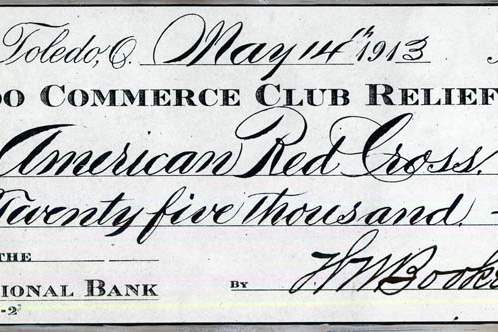 Toledo, O. May 14th 1913
DO COMMERCE CLUB RELIEF
American Red Cross.
Twenty five thousand
THE
IONAL BANK BY
-2